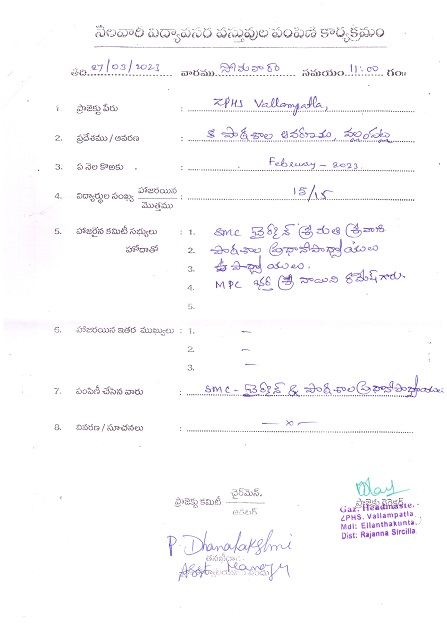 నెలవారి విద్యావసర వస్తువుల పంపిణి కార్యక్రమం
తేది 27/03/2023 వారము సోమవారం సమయం 11:00 గం॥
1. ప్రాజెక్టు పేరు : ZPHS Vallampatla,
2. ప్రదేశము / ఆవరణ : పాఠశాల ఆవరణము, వల్లంపట్ల
3. ఏ నెల కొఱకు : February - 2023
4. విద్యార్థుల సంఖ్య హాజరయిన / మొత్తము : 15/15
5. హాజరైన కమిటీ సభ్యులు : 1. SMC చైర్మన్ శ్రీమతి శ్రీవాణి
హోదాతో 2. పాఠశాల ప్రధానోపాధ్యాయులు
3. ఉపాధ్యాయులు.
4. MPC శ్రీ రమేష్ గారు.
5.
6. హాజరయిన ఇతర ముఖ్యులు : 1. –
2. –
3. –
7. పంపిణీ చేసిన వారు : SMC - చైర్మన్ & పాఠశాల ప్రధానోపాధ్యాయులు
8. వివరణ / సూచనలు : —x—
ప్రాజెక్టు కమిటీ చైర్మెన్.
P. Dhanalakshmi
Gaz. Headmaste.
ZPHS. Vallampatla
Mdl: Ellanthakunta.
Dist: Rajanna Sircilla.